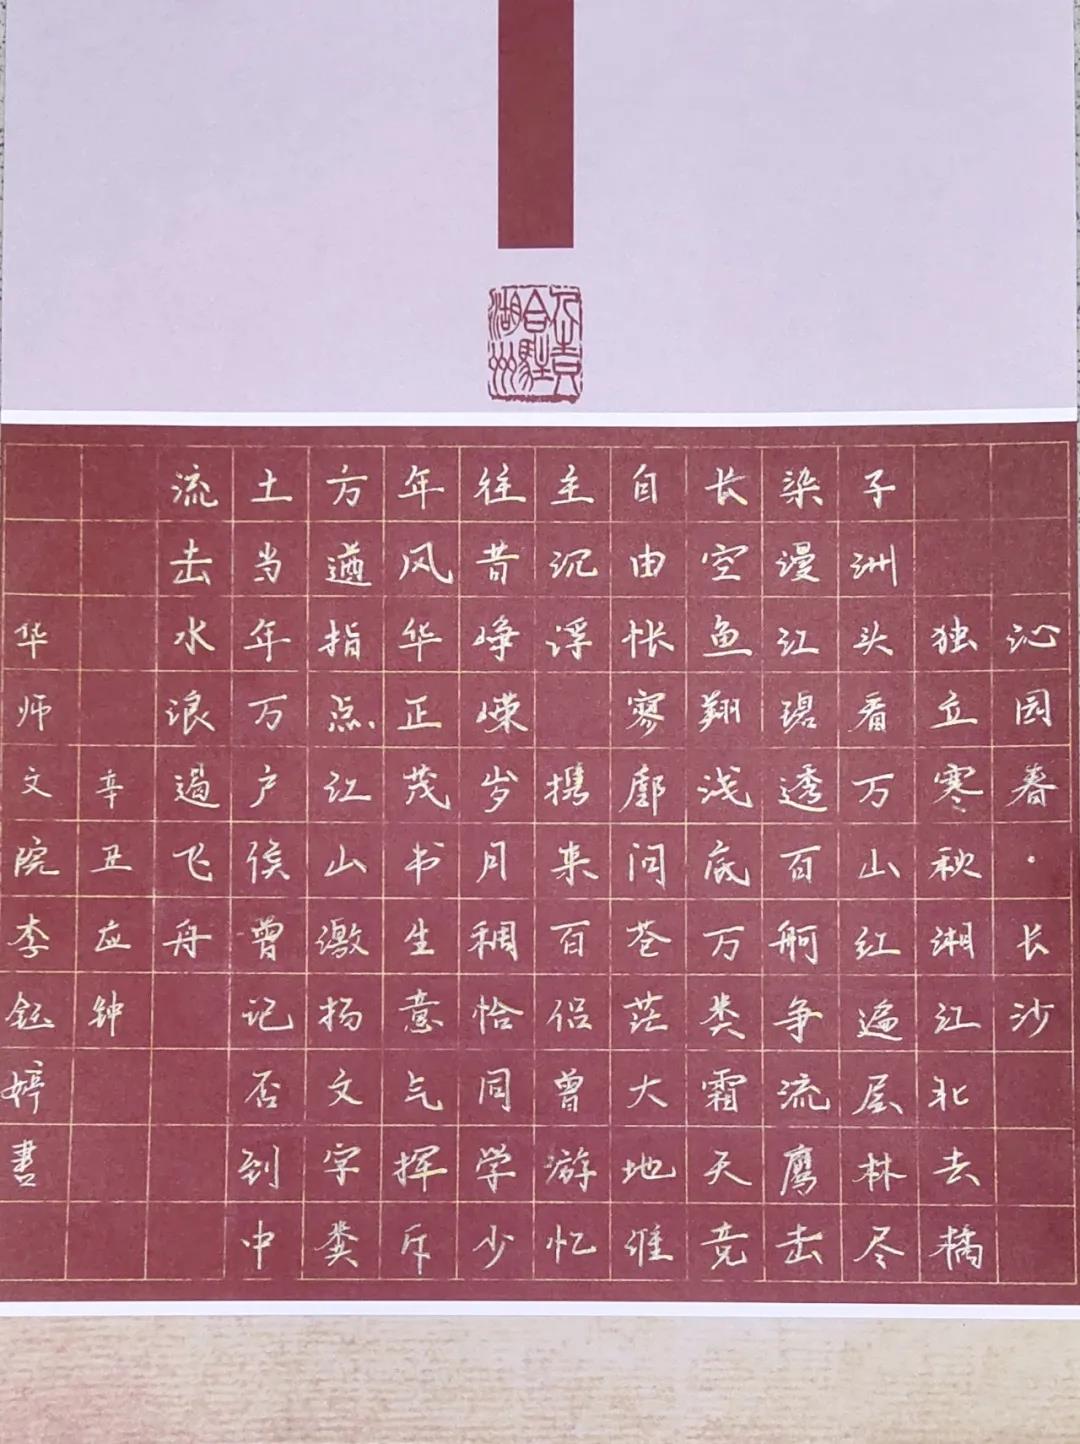 沁园春·长沙
独立寒秋湘江北去橘
子洲头看万山红遍层林尽
染漫江碧透百舸争流鹰击
长空鱼翔浅底万类霜天竞
自由怅寥廓问苍茫大地谁
主沉浮 携来百侣曾游忆
往昔峥嵘岁月稠恰同学少
年风华正茂书生意气挥斥
方遒指点江山激扬文字粪
土当年万户侯曾记否到中
流击水浪遏飞舟
辛丑应钟
华师文院李钰婷書